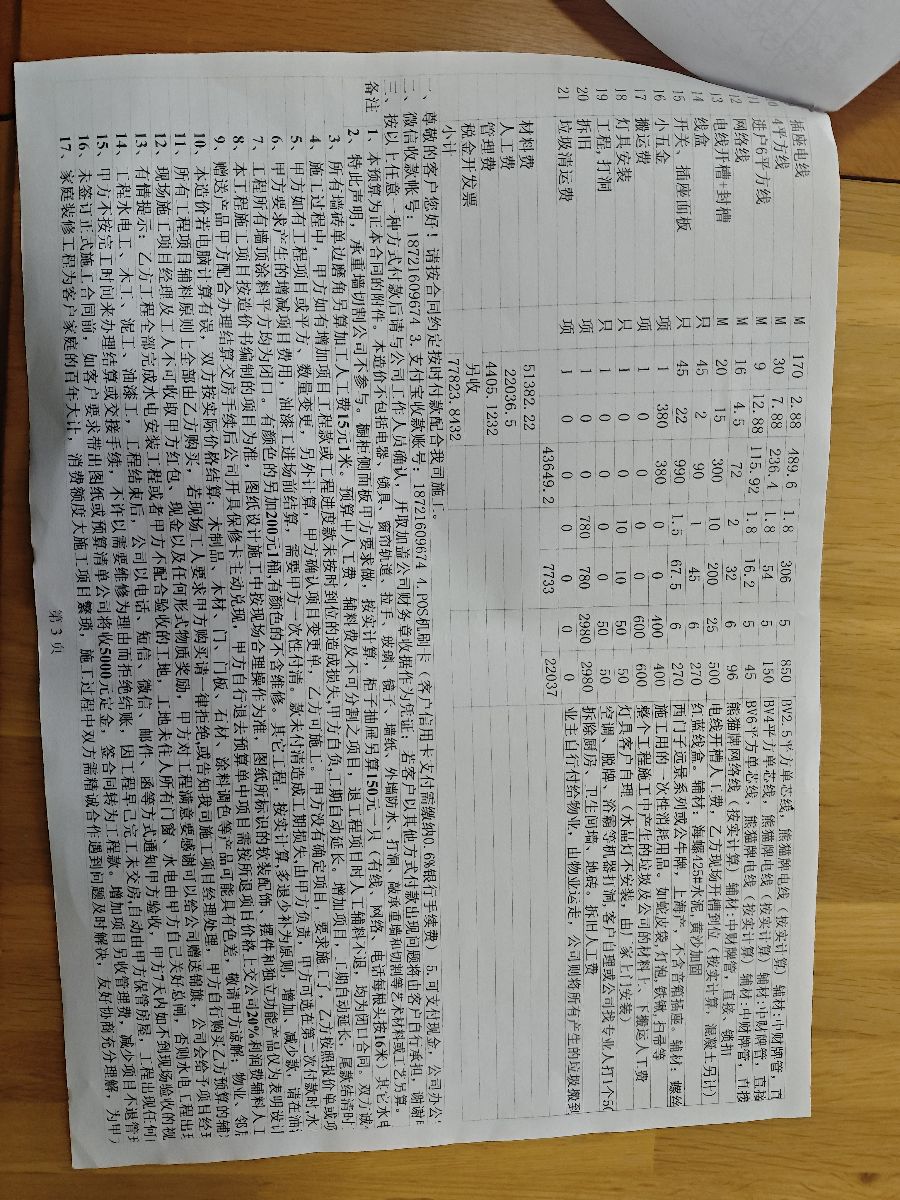 插座电线 M 170 2.88 489.6 1.8 306 5 850 BV2.5平方单芯线，熊猫牌电线（按实计算）辅材:中财牌管，直
4平方线 M 30 7.88 236.4 1.8 54 5 150 BV4平方单芯线，熊猫牌电线（按实计算）辅材:中财牌管，直接
进户6平方线 M 9 12.88 115.92 1.8 16.2 5 45 BV6平方单芯线，熊猫牌电线（按实计算）辅材:中财牌管，直接
12 网络线 M 16 4.5 72 2 32 6 96 熊猫牌网络线（按实计算）辅材:中财牌管，直接，锁扣
13 电线开槽+封槽 M 20 15 300 10 200 25 500 电线开槽人工费，乙方现场开槽到位（按实计算，混凝土另计）
14 线盒 只 45 2 90 1 45 6 270 红蓝线盒。辅材：海螺425#水泥，黄沙加固
15 开关、插座面板 只 45 22 990 1.5 67.5 6 270 西门子远景系列或公牛牌，上海产，不含音箱插座。辅材：螺丝
16 小五金 项 1 380 380 0 0 400 400 施工用的一次性消耗用品。如蛇皮袋，灯泡,铁锹,扫帚等
17 搬运费 项 1 0 0 0 0 600 600 整个工程施工中产生的垃圾及公司的材料上、下搬运人工费
18 灯具安装 只 1 0 0 10 10 50 50 灯具客户自理（水晶灯不安装，由厂家上门安装）
19 工程,打洞 只 1 0 0 0 0 50 50 空调、脱排、浴霸等机器打洞,客户自理或公司找专业人打1个50
20 拆旧 项 1 0 0 780 780 2980 2980 拆除厨房、卫生间墙、地砖。拆旧人工费
21 垃圾清运费 项 1 0 0 0 0 0 0 业主自行付给物业，由物业运走，公司则将所有产生的垃圾搬到
43649.2 7733 22037
材料费 51382.22
人工费 22036.5
管理费 4405.1232
税金开发票 另收
小计 77823.8432
一、尊敬的客户您好！请按合同约定按时付款配合我司施工。
二、微信收款账号：18721609674 3.支付宝收款账号：18721609674 4.POS机刷卡（客户信用卡支付需缴纳0.6%银行手续费）5.可支付现金，公司办公
三、按以上任意一种方式付款后请与公司工作人员确认，开取加盖公司财务章收据作为凭证，若客户以其他方式付款出现问题将由客户自行承担，谢谢
备注 1、本预算为正本合同的附件。本造价不包括电器、锁具、窗帘轨道、拉手、玻璃、镜子、墙纸、外墙防水、打洞、敲承重墙和切割等艺术材料或工艺另算。
2、特此声明，承重墙切割公司不参与。橱柜侧面板甲方要求做，按实计算，柜子抽屉另算150元一只（有线，网络、电话每根头按16米）其它水电
3、所有墙砖单边磨角另算加工人工费15元1米。预算中人工费，辅料费及不可分割之项目，退工程项目时人工辅料不退，均为闭口合同。双方诚
4、施工过程中，甲方如有增加项目工程款或工程进度款未按时到位的造成损失,甲方自负,工期自动延长。增加项目，工期自动延长，尾款结清时
5、甲方如有工程项目或平方、数量变更，另外计算，甲方确认项目变更单，乙方可施工。甲方没有确定项目，要求施工了，乙方按照报价单或项
6、甲方要求产生的增减项目费用，油漆工进场前结算，需要甲方一次性付清。款未付清造成工期损失,由甲方负责，甲方可选在第二次付款时,水
7、工程所有墙顶涂料平方均为闭口。有颜色的另加200元1桶,有颜色的不含维修。其它工程，按实计算,多退少补为原则，增加、减少款，请在油漆
8、本工程施工项目按造价书编制的项目为准，图纸设计施工中按现场合理操作为准，图纸所标识的软装配饰、摆件和独立功能产品仅为表明设计
9、赠送产品甲方配合办理结算交房手续后公司开具保修卡主动兑现。甲方自行退去预算单中项目需按所退项目价格上交公司20%利润费辅料人工
10、本造价若电脑计算有误，双方按实际价格结算；木制品、木材、门、门板、石材、涂料调色等产品可能具有色差，敬请甲方谅解。物业、邻居
11、所有工程项目辅料原则上全部由乙方购买，若现场工人要求甲方购买请一律拒绝,或告知我司施工项目经理处理，甲方自行购买乙方预算的辅料
12、现场施工项目经理及工人不可收取甲方红包、现金以及任何形式物质奖励，甲方对工程满意要感谢可以给公司赠送锦旗，公司会给予项目经理
13、有情提示：乙方工程全部完成水电安装工程或者甲方不配合验收的工地，工地未住人所有门窗、水电由甲方自己关好总闸，否则水电工程出现
14、工程水电工、木工、泥工、油漆工，工程结束后，公司以电话、短信、微信、邮件、函等方式通知甲方验收，甲方7天内如不到现场验收的视
15、甲方不按完工时间来办理结算或交接手续，不许以需要维修为理由而拒绝结账，因工程早已完工未交房,自动由甲方保管房屋，工程出现任何
16、未签订正式施工合同前，如客户要求带出图纸或预算清单公司将收5000元定金，签合同转为工程款。增加项目另收管理费，减少项目不退管理
17、家庭装修工程为客户家庭的百年大计，消费额度大施工项目繁琐，施工过程中双方需精诚合作遇到问题及时解决，友好协商充分理解，为甲方
第 3 页